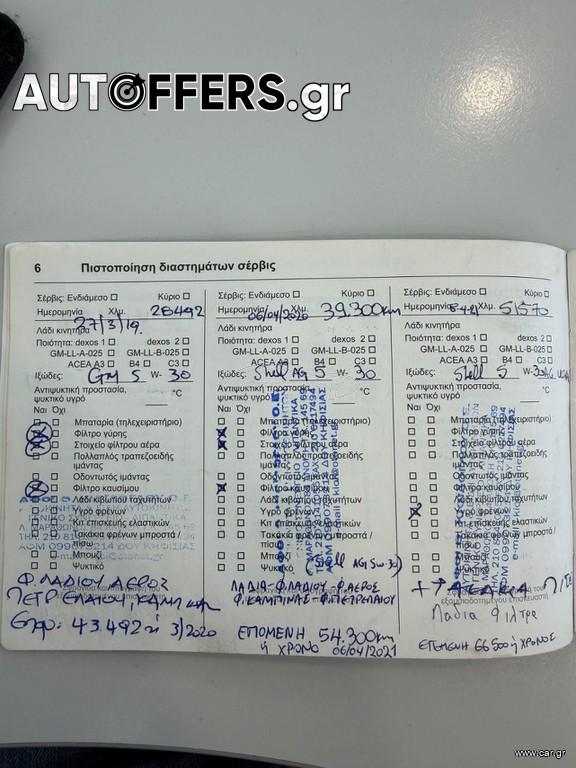 AUTOFFERS.gr
6 Πιστοποίηση διαστημάτων σέρβις
Σέρβις: Ενδιάμεσο Κύριο
Ημερομηνία Χλμ. 28492
27/3/19.
Λάδι κινητήρα
Ποιότητα: dexos 1 dexos 2
GM-LL-A-025 GM-LL-B-025
ACEA A3 B4 C3
Ιξώδες: GM 5 W- 30
Αντιψυκτική προστασία,
ψυκτικό υγρό °C
Ναι Όχι
Μπαταρία (τηλεχειριστήριο)
Φίλτρο γύρης
Στοιχείο φίλτρου αέρα
Πολλαπλός τραπεζοειδής
ιμάντας
Οδοντωτός ιμάντας
Φίλτρο καυσίμου
Λάδι κιβωτίου ταχυτήτων
Υγρό φρένων
Κιτ επισκευής ελαστικών
Τακάκια φρένων μπροστά /
πίσω
Μπουζί
Ψυκτικό
Φ. ΛΑΔΙΟΥ ΑΕΡΟΣ
ΠΕΤΡΕΛΑΙΟΥ, ΚΑΜΠ
43.492 ή 3/2020
Σέρβις: Ενδιάμεσο Κύριο
Ημερομηνία Χλμ. 39.300km
06/04/2020
Λάδι κινητήρα
Ποιότητα: dexos 1 dexos 2
GM-LL-A-025 GM-LL-B-025
ACEA A3 B4 C3
Ιξώδες: Shell AG 5 W- 30
Αντιψυκτική προστασία,
ψυκτικό υγρό °C
Ναι Όχι
Μπαταρία (τηλεχειριστήριο)
Φίλτρο γύρης
Στοιχείο φίλτρου αέρα
Πολλαπλός τραπεζοειδής
ιμάντας
Οδοντωτός ιμάντας
Φίλτρο καυσίμου
Λάδι κιβωτίου ταχυτήτων
Υγρό φρένων
Κιτ επισκευής ελαστικών
Τακάκια φρένων μπροστά /
πίσω
Μπουζί
Ψυκτικό
ΛΑΔΙΑ-Φ.ΛΑΔΙΟΥ-Φ.ΑΕΡΟΣ
Φ.ΚΑΜΠΙΝΑΣ-Φ.ΠΕΤΡΕΛΑΙΟΥ
ΕΠΟΜΕΝΗ 54.300km
ή ΧΡΟΝΟ 06/04/2021
Σέρβις: Ενδιάμεσο Κύριο
Ημερομηνία Χλμ. 51570
Λάδι κινητήρα
Ποιότητα: dexos 1 dexos 2
GM-LL-A-025 GM-LL-B-025
ACEA A3 B4 C3
Ιξώδες: Shell 5 W-
Αντιψυκτική προστασία,
ψυκτικό υγρό °C
Ναι Όχι
Μπαταρία (τηλεχειριστήριο)
Φίλτρο γύρης
Στοιχείο φίλτρου αέρα
Πολλαπλός τραπεζοειδής
ιμάντας
Οδοντωτός ιμάντας
Φίλτρο καυσίμου
Λάδι κιβωτίου ταχυτήτων
Υγρό φρένων
Κιτ επισκευής ελαστικών
Τακάκια φρένων μπροστά /
πίσω
Μπουζί
Ψυκτικό
Λάδια Φίλτρα
ΕΠΟΜΕΝΗ 66500 ή ΧΡΟΝΟΣ
www.car.gr